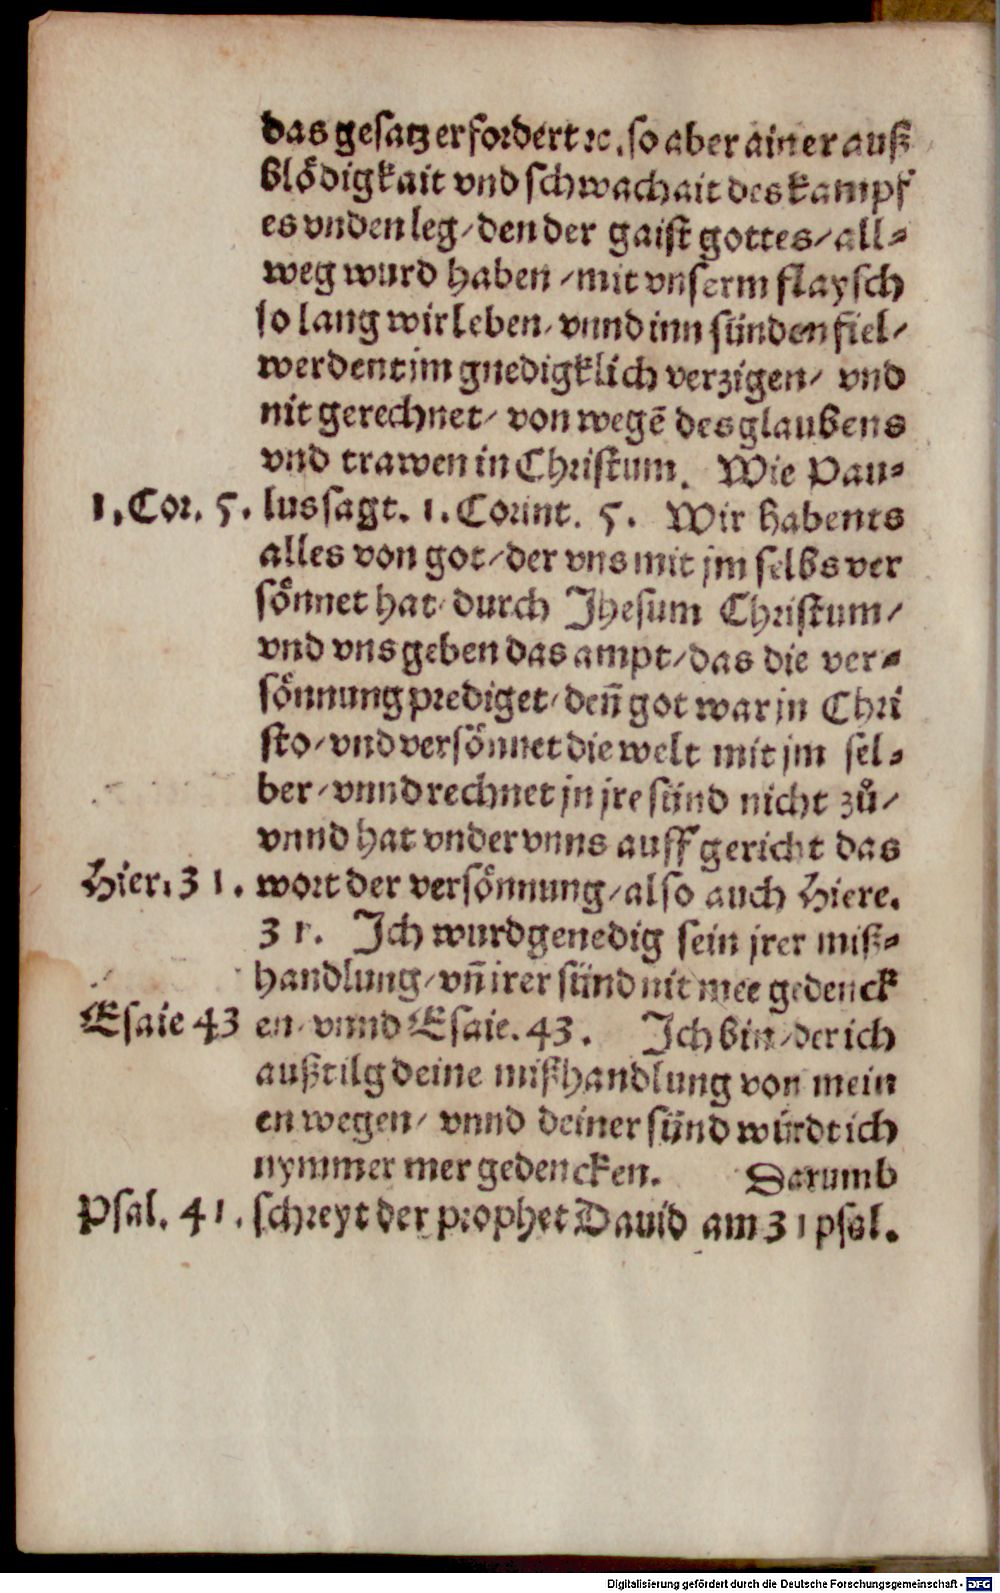 das gesatz erfordert ꝛc. so aber ainer auß
blödigkait vnd schwachait des kampf
es vnden leg / den der gaist gottes / all⸗
weg wurd haben / mit vnserm flaysch
so lang wir leben / vnnd inn sünden fiel /
werdent jm gnedigklich verzigen / vnd
nit gerechnet / von wegē des glaubens
vnd trawen in Christum. Wie Pau⸗
1. Cor. 5. lus sagt. 1. Corint. 5. Wir habents
alles von got / der vns mit jm selbs ver
sönnet hat / durch Jhesum Christum /
vnd vns geben das ampt / das die ver⸗
sönnung prediget / deñ got war in Chri
sto / vnd versönnet die welt mit jm sel⸗
ber / vnnd rechnet jn jre sünd nicht zů /
vnnd hat vnder vnns auff gericht das
Hier. 31. wort der versönnung / also auch Hiere.
31. Ich wurd genedig sein jrer miß⸗
handlung / vñ irer sünd nit mee gedenck
Esaie 43 en / vnnd Esaie. 43. Ich bin / der ich
außtilg deine mißhandlung von mein
en wegen / vnnd deiner sünd würdt ich
nymmer mer gedencken. Darumb
Psal. 41. schreyt der prophet Dauid am 31 psal.
Digitalisierung gefördert durch die Deutsche Forschungsgemeinschaft - DFG